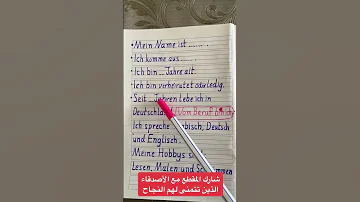 • Mein Name ist ........ .
• Ich komme aus ...... .
• Ich bin ... Jahre alt.
• Ich bin verheiratet od. ledig.
• Seit ... Jahren lebe ich in
Deutschland. Von Beruf bin
Ich spreche Arabisch, Deutsch
und Englisch.
Meine Hobbys sind
Lesen, Malen und Schwimmen
شارك المقطع مع الأصدقاء
الذين تتمنى لهم النجاح